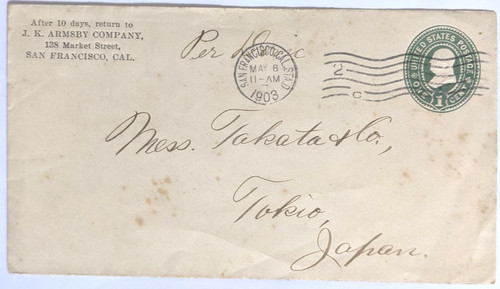 After 10 days, return to
J. K. ARMSBY COMPANY,
138 Market Street,
SAN FRANCISCO, CAL.
Per Doric
SAN FRANCISCO, CAL. STA. D
MAY 6
11-AM
1903
UNITED STATES POSTAGE
1
Mess. Takata & Co.,
Tokio,
Japan.